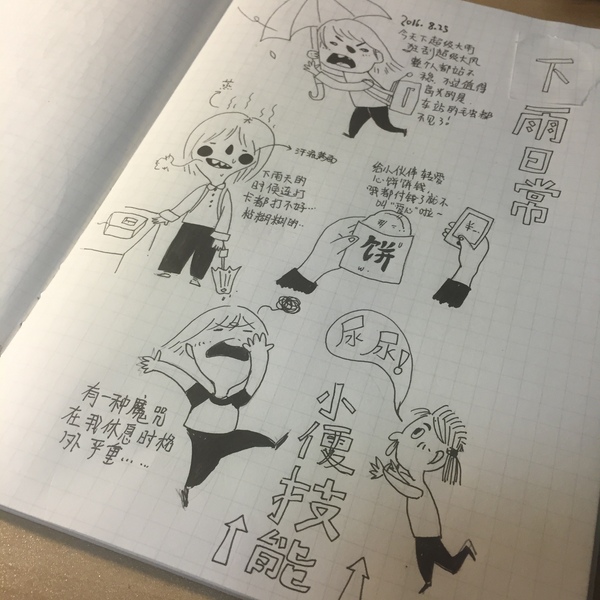 下雨日常
2016.8.23
今天下超级大雨
还刮超级大风
整个人都站不
稳. 不过值得
高兴的是.
车站的毛虫都
不见了!
蒸
下雨天的
时候连打
卡都打不好…
粘糊糊的..
给小伙伴转爱
心饼饼钱.
都付钱了就不
叫"爱心"啦~
饼
尿尿!
有一种魔咒
在我休息时格
外严重……
小便技能